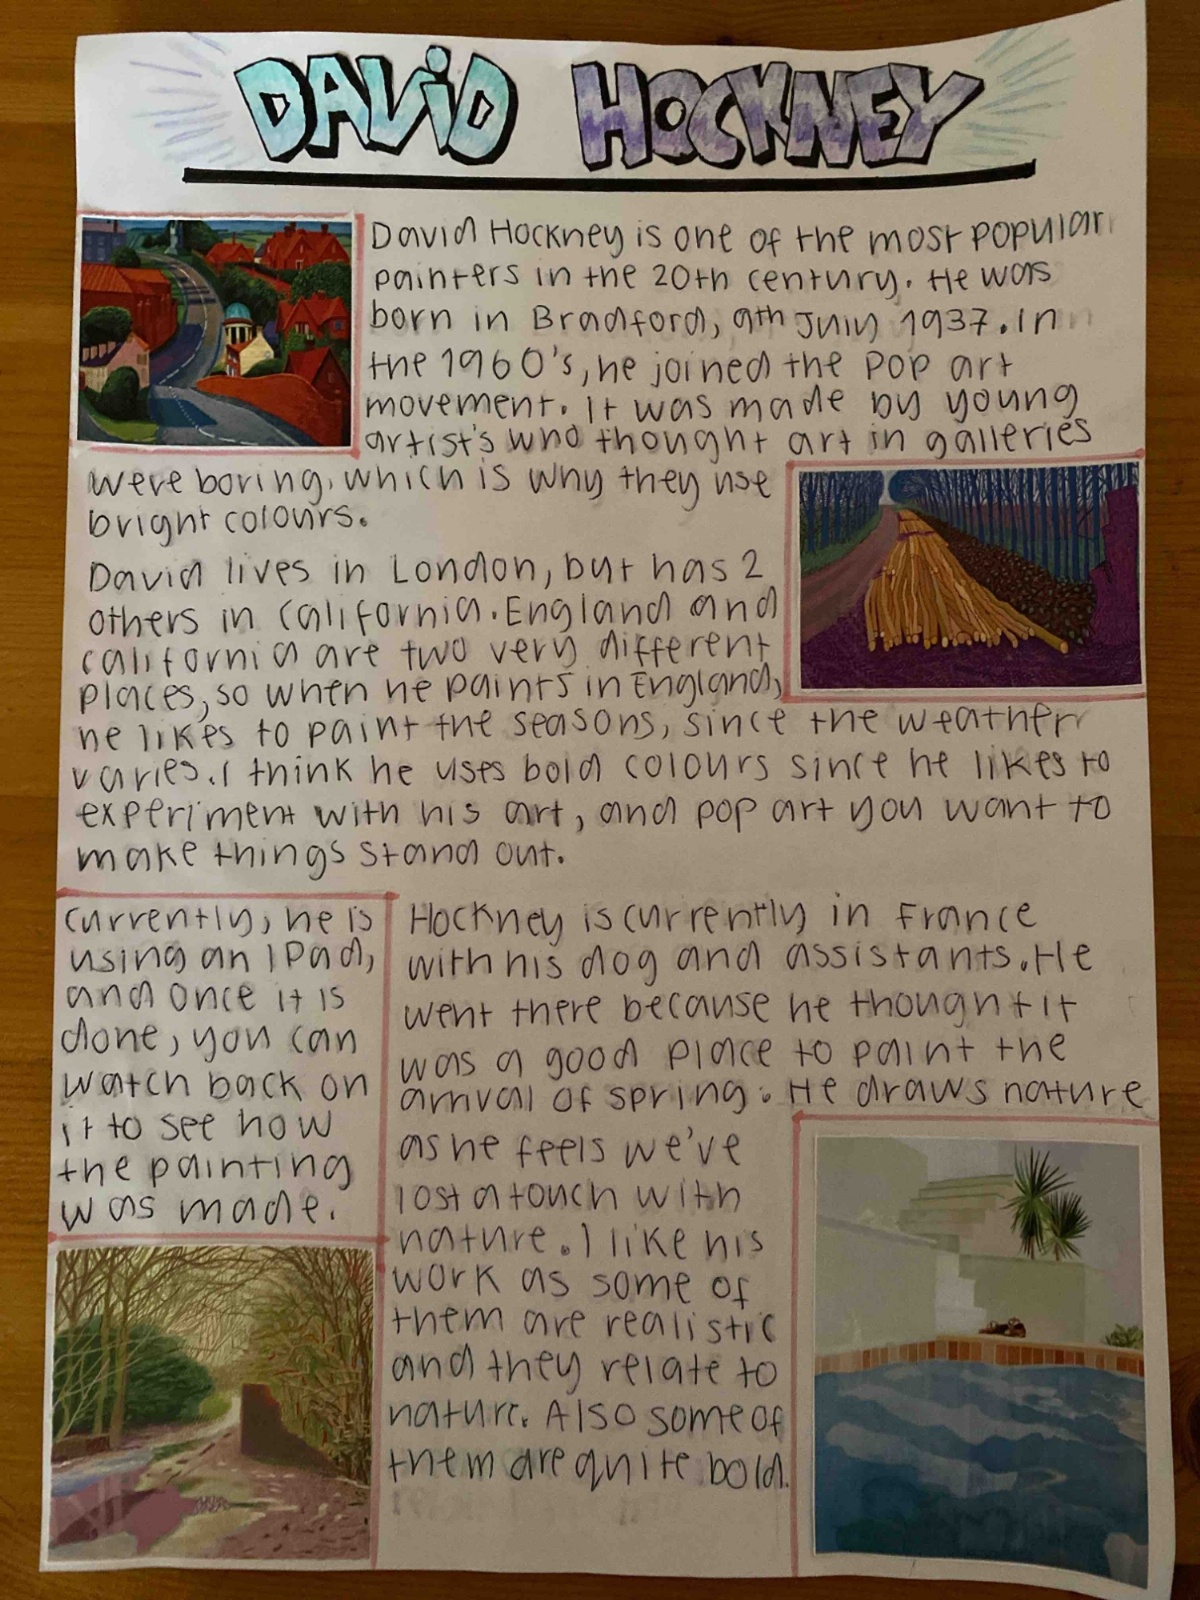 DAViD HOCKNEY
David Hockney is one of the most popular
painters in the 20th century. He was
born in Bradford, 9th July 1937. In
the 1960's, he joined the Pop art
movement. It was made by young
artist's who thought art in galleries
were boring, which is why they use
bright colours.
David lives in London, but has 2
others in California. England and
California are two very different
places, so when he paints in England,
he likes to paint the seasons, since the weather
varies. I think he uses bold colours since he likes to
experiment with his art, and pop art you want to
make things stand out.
Currently, he is
using an IPad,
and once it is
done, you can
watch back on
it to see how
the painting
was made.
Hockney is currently in France
with his dog and assistants. He
went there because he thought it
was a good place to paint the
arrival of spring. He draws nature
as he feels we've
lost a touch with
nature. I like his
work as some of
them are realistic
and they relate to
nature. Also some of
them are quite bold.